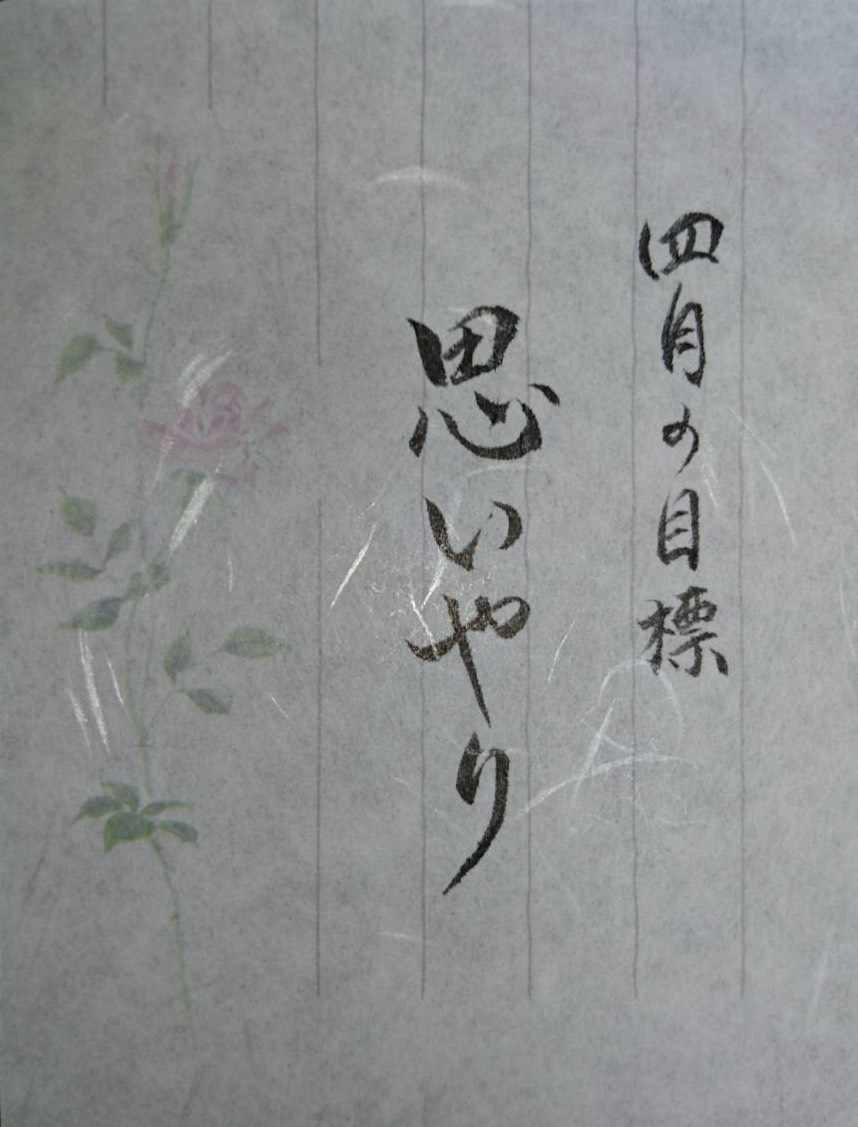 四月の目標
思いやり